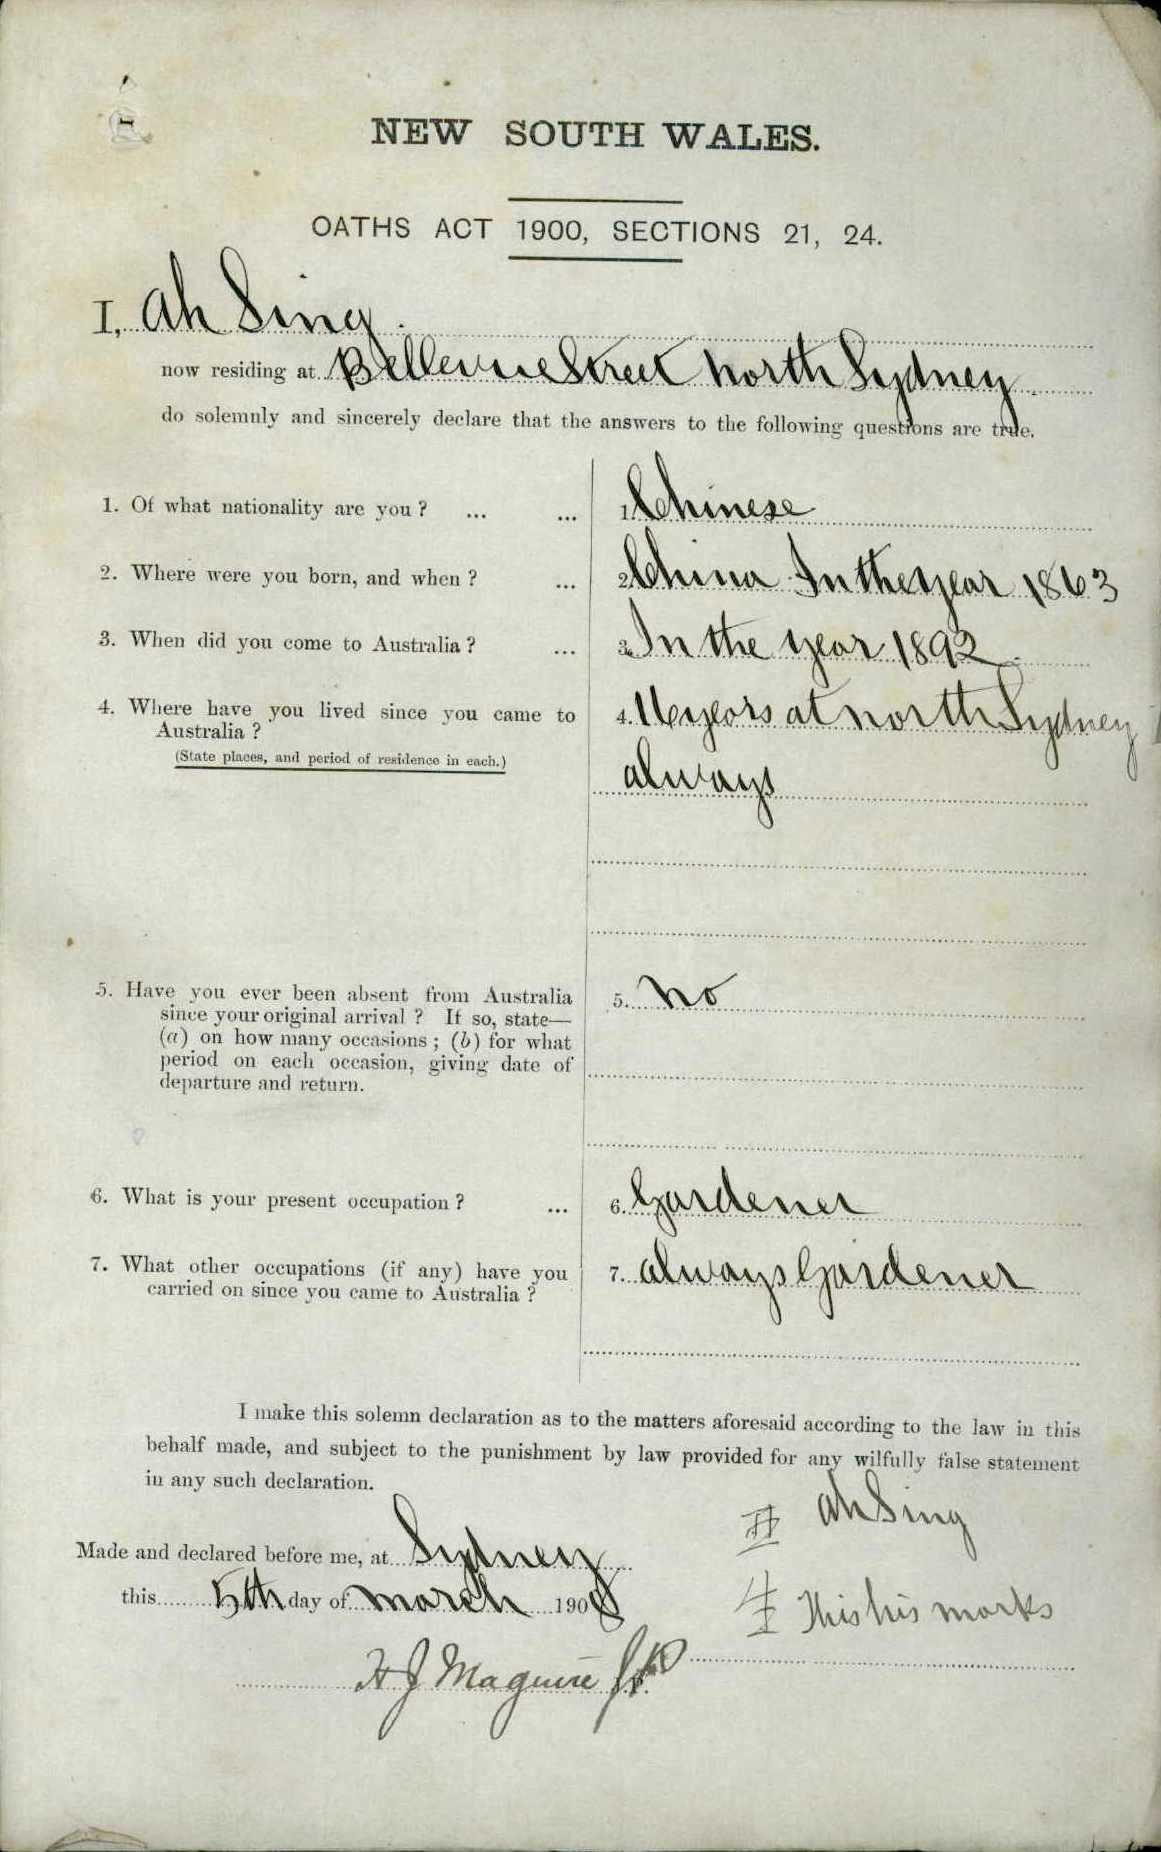 NEW SOUTH WALES.
OATHS ACT 1900, SECTIONS 21, 24.
I, Ah Sing.
now residing at Bellevue Street North Sydney
do solemnly and sincerely declare that the answers to the following questions are true.
1. Of what nationality are you? ... ... 1. Chinese
2. Where were you born, and when? ... 2. China In the year 1863
3. When did you come to Australia? ... 3. In the year 1892
4. Where have you lived since you came to 4. 16 years at North Sydney
Australia?
(State places, and period of residence in each.)
always
5. Have you ever been absent from Australia 5. No
since your original arrival? If so, state—
(a) on how many occasions; (b) for what
period on each occasion, giving date of
departure and return.
6. What is your present occupation? ... 6. Gardener
7. What other occupations (if any) have you 7. always Gardener
carried on since you came to Australia?
I make this solemn declaration as to the matters aforesaid according to the law in this
behalf made, and subject to the punishment by law provided for any wilfully false statement
in any such declaration.
Ah Sing
Made and declared before me, at Sydney
this 5th day of March 1908
生 This his marks
H J Maguire JP